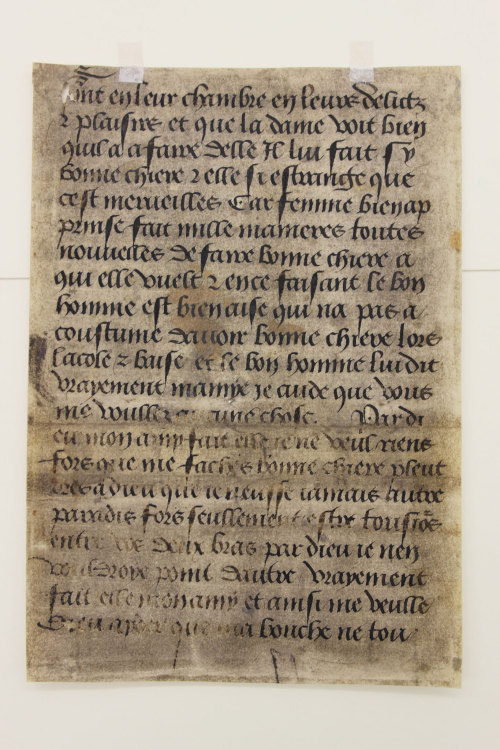 sont en leur chambre en leurs delitz
⁊ plaisirs et que la dame voit bien
quil a a faire delle Il lui fait sy
bonne chiere ⁊ elle si estrange que
cest merueilles Car femme bien ap
prinse fait mille manieres toutes
nouuelles de faire bonne chiere a
qui elle vuelt ⁊ en ce faisant le bon
homme est bien aise qui na pas a
coustume dauoir bonne chiere lors
lacole ⁊ baise et le bon homme lui dit
vrayement mamye je cuide que vous
me voulles aucune chose. Par di
eu mon amy fait elle je ne veul riens
fors que me faches bonne chiere pleut
ores a dieu que ie neusse iamais autre
paradis fors seullement estre tousiõs
entre vos deux bras par dieu ie nen
vouldroye point dautre vrayement
fait elle mon amy et ainsi me veulle
Dieu aydier que ma bouche ne tou